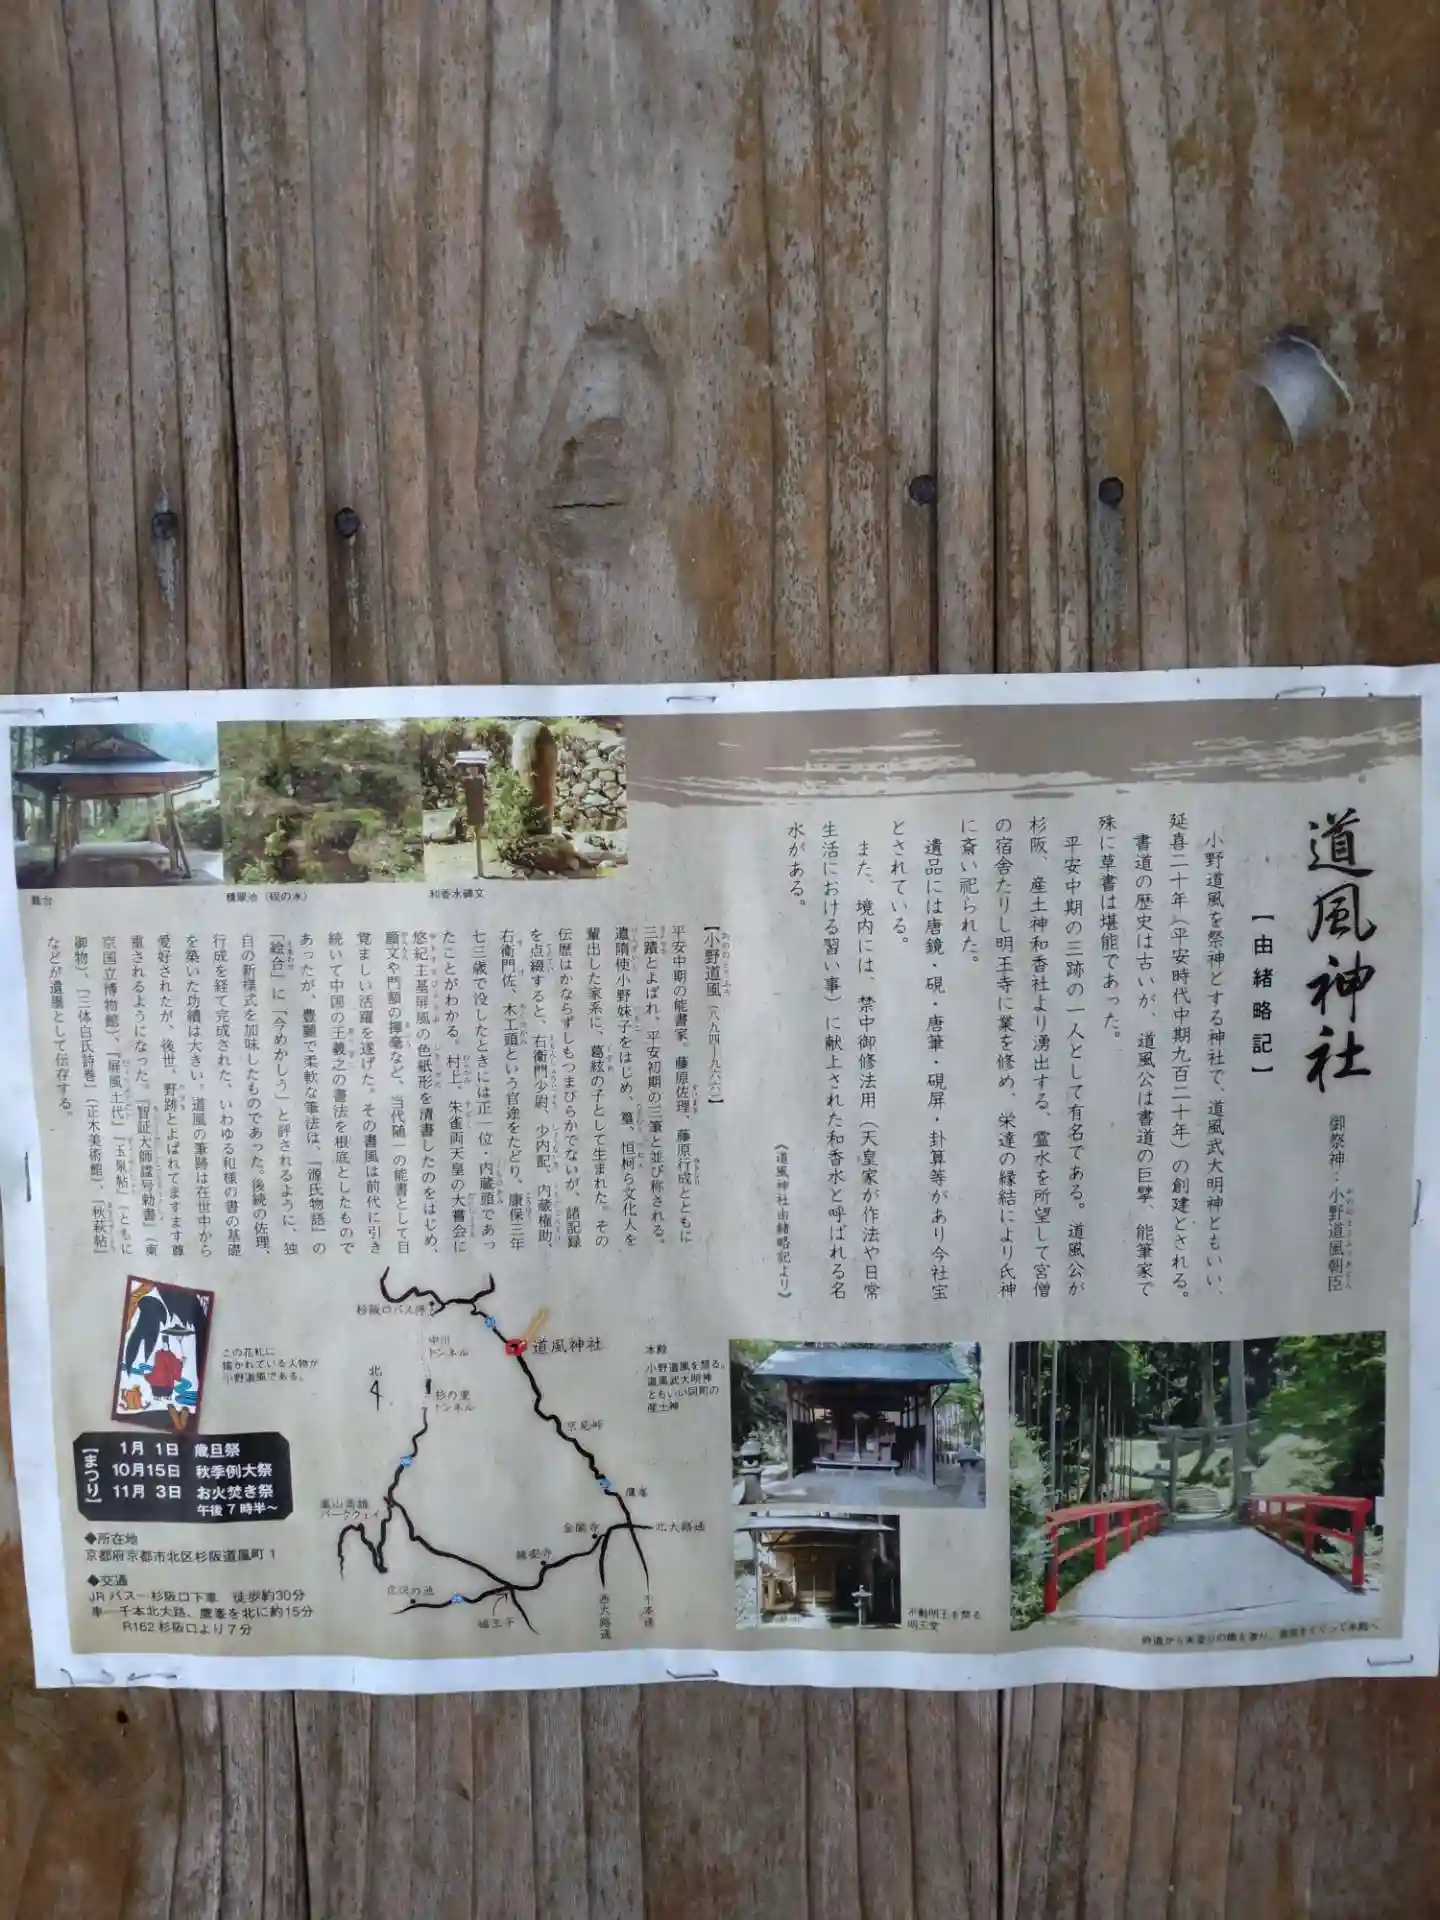 道風神社
御祭神：小野道風朝臣
【由緒略記】
小野道風を祭神とする神社で、道風武大明神ともいい、
延喜二十年（平安時代中期九百二十年）の創建とされる。
書道の歴史は古いが、道風公は書道の巨擘、能筆家で
殊に草書は堪能であった。
平安中期の三跡の一人として有名である。道風公が
杉阪、産土神和香社より湧出する、霊水を所望して宮僧
の宿舎たりし明王寺に業を修め、栄達の縁結により氏神
に斎い祀られた。
遺品には唐鏡・硯・唐筆・硯屏・卦算等があり今社宝
とされている。
また、境内には、禁中御修法用（天皇家が作法や日常
生活における習い事）に献上された和香水と呼ばれる名
水がある。
（道風神社由緒略記より）
舞台
積翠池（硯の水）
和香水碑文
【小野道風（八九四―九六六）】
平安中期の能書家。藤原佐理、藤原行成とともに
三蹟とよばれ、平安初期の三筆と並び称される。
遣隋使小野妹子をはじめ、篁、恒柯ら文化人を
輩出した家系に、葛絃の子として生まれた。その
伝歴はかならずしもつまびらかでないが、諸記録
を点綴すると、右衛門少尉、少内記、内蔵権助、
右衛門佐、木工頭という官途をたどり、康保三年
七三歳で没したときには正一位・内蔵頭であっ
たことがわかる。村上、朱雀両天皇の大嘗会に
悠紀主基屏風の色紙形を清書したのをはじめ、
願文や門額の揮毫など、当代随一の能書として目
覚ましい活躍を遂げた。その書風は前代に引き
続いて中国の王羲之の書法を根底としたもので
あったが、豊麗で柔軟な筆法は、『源氏物語』の
「絵合」に「今めかしう」と評されるように、独
自の新様式を加味したものであった。後続の佐理、
行成を経て完成された、いわゆる和様の書の基礎
を築いた功績は大きい。道風の筆跡は在世中から
愛好されたが、後世、野跡とよばれてますます尊
重されるようになった。『智証大師諡号勅書』（東
京国立博物館）、『屏風土代』『玉泉帖』（ともに
御物）、『三体白氏詩巻』（正木美術館）、『秋萩帖』
などが遺墨として伝存する。
この花札に
描かれている人物が
小野道風である。
【まつり】
1月 1日 歳旦祭
10月15日 秋季例大祭
11月 3日 お火焚き祭
午後7時半～
◆所在地
京都府京都市北区杉阪道風町1
◆交通
JRバス―杉阪口下車 徒歩約30分
車―千本北大路、鷹峯を北に約15分
R162杉阪口より7分
杉阪口バス停
中川
トンネル
北
杉の里
トンネル
道風神社
京見峠
鷹峯
嵐山高雄
パークウェイ
金閣寺
北大路通
龍安寺
広沢の池
福王子
西大路通
千本通
本殿
小野道風を祭る。
道風武大明神
ともいい同町の
産土神
不動明王を祭る
明王堂
府道から朱塗りの橋を渡り、鳥居をくぐって本殿へ